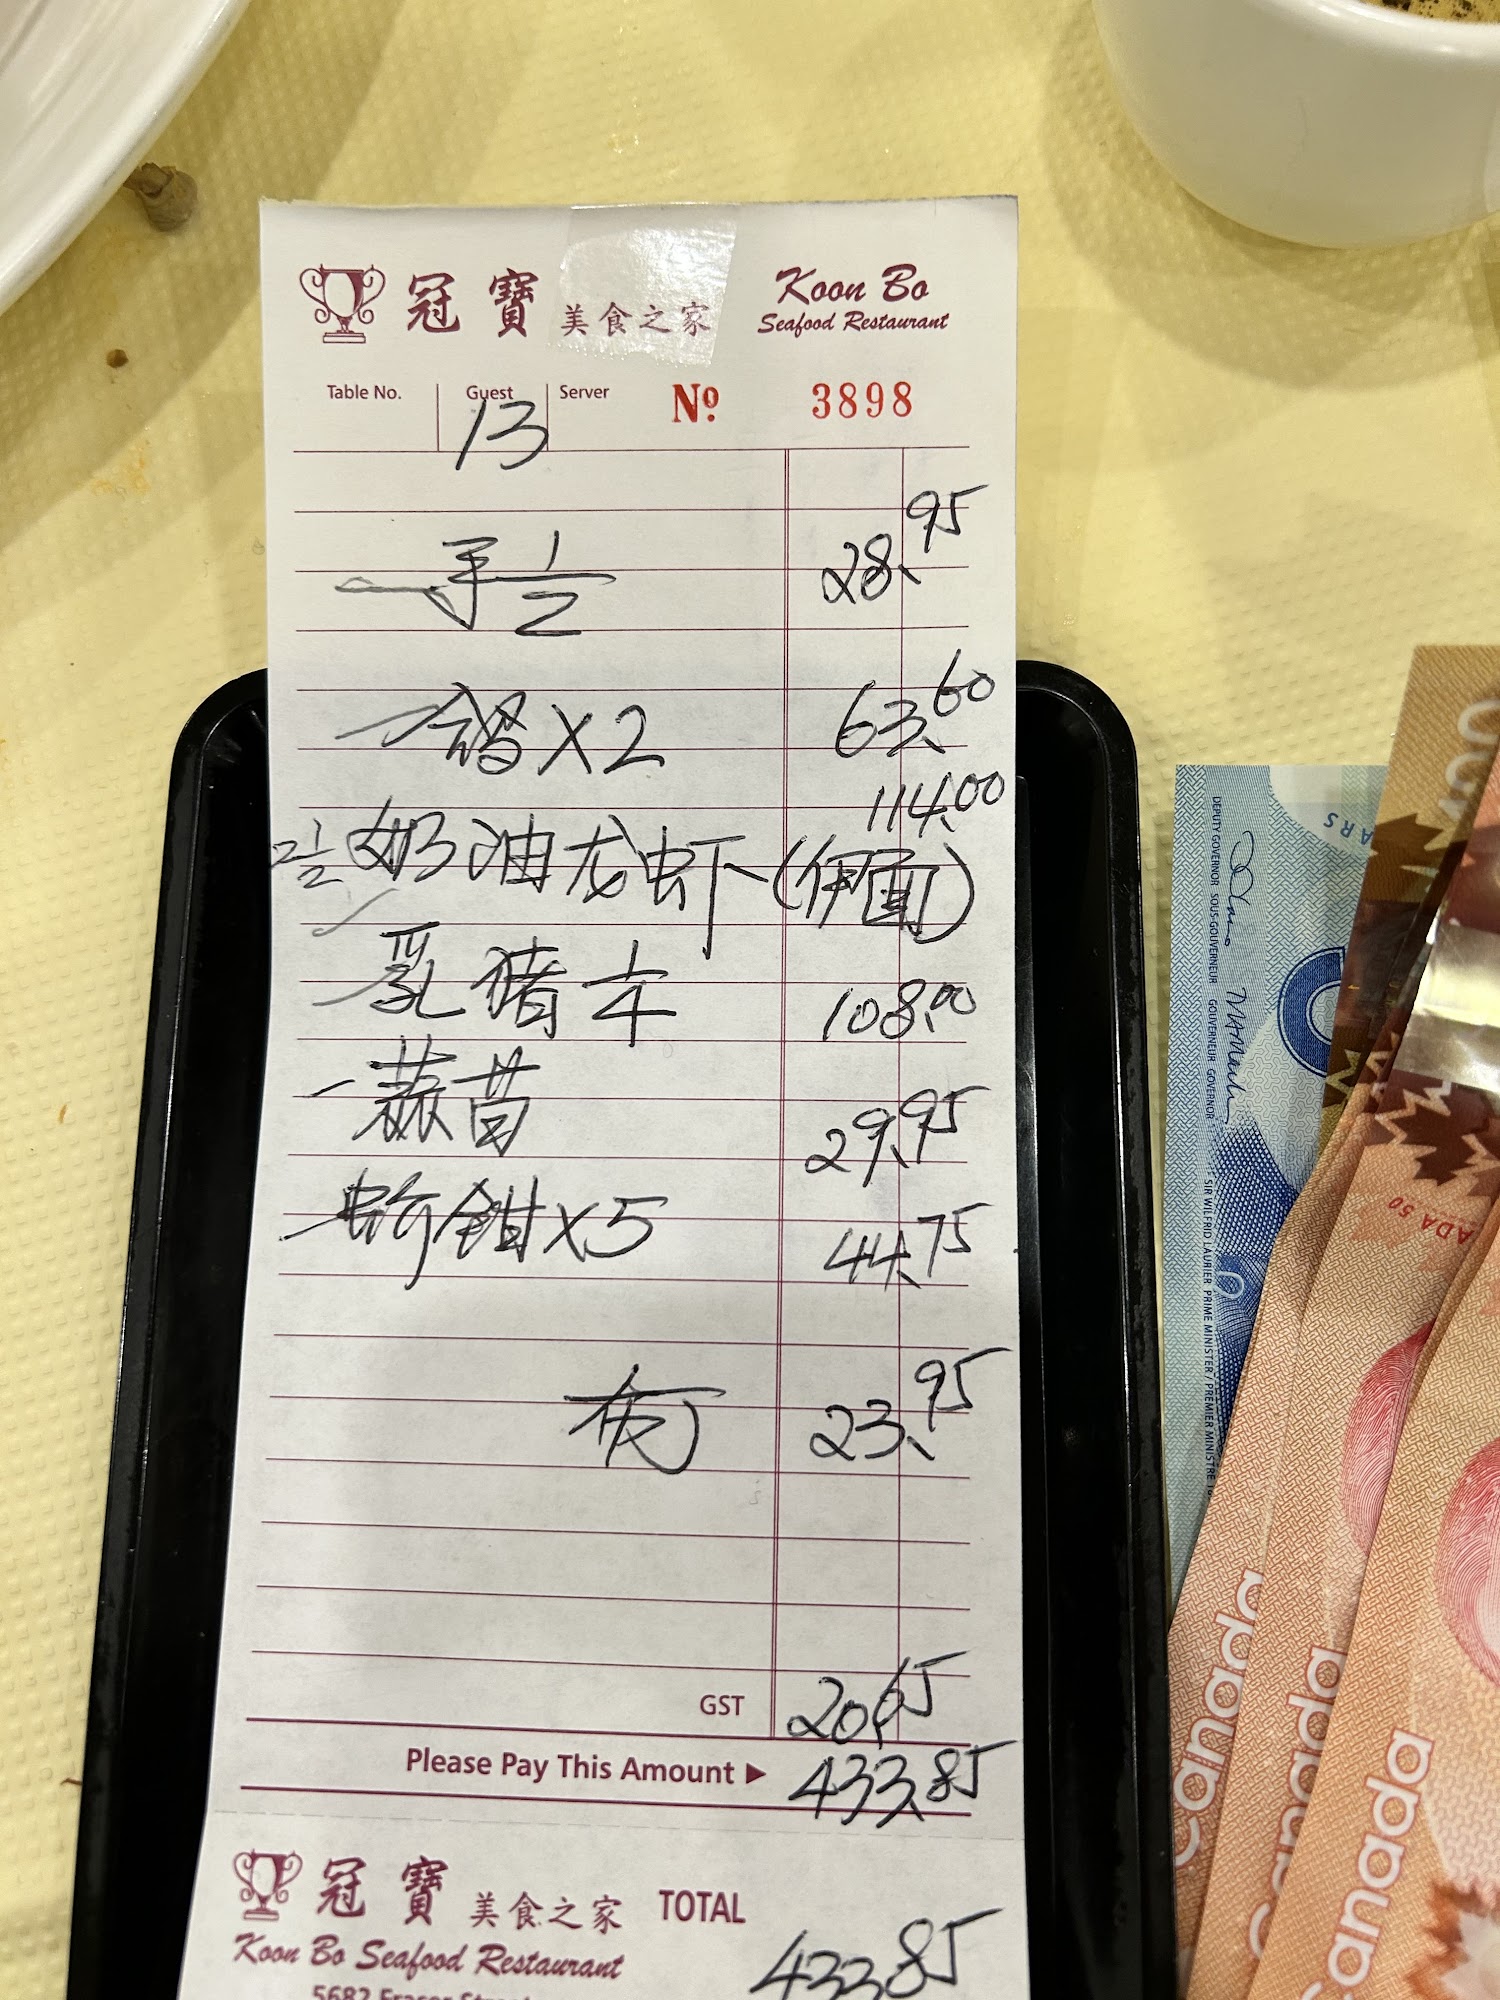 冠寶 美食之家 Koon Bo
Seafood Restaurant
Table No. Guest Server № 3898
13
手 1/2 28.95
X2 63.60
114.00
2 1/2 奶油龙虾(伊面)
乳猪 1/4 108.00
蒜苗 29.95
X5 44.75
23.95
GST 20.65
Please Pay This Amount ▶ 433.85
冠寶 美食之家 TOTAL
Koon Bo Seafood Restaurant 433.85
5682 Fraser Street
ARS
DEPUTY GOVERNOR SOUS-GOUVERNEUR GOUVERNEUR GOVERNOR
SIR WILFRID LAURIER PRIME MINISTER / PREMIER MINISTRE
ADA 50
Canada
Canada
Canada